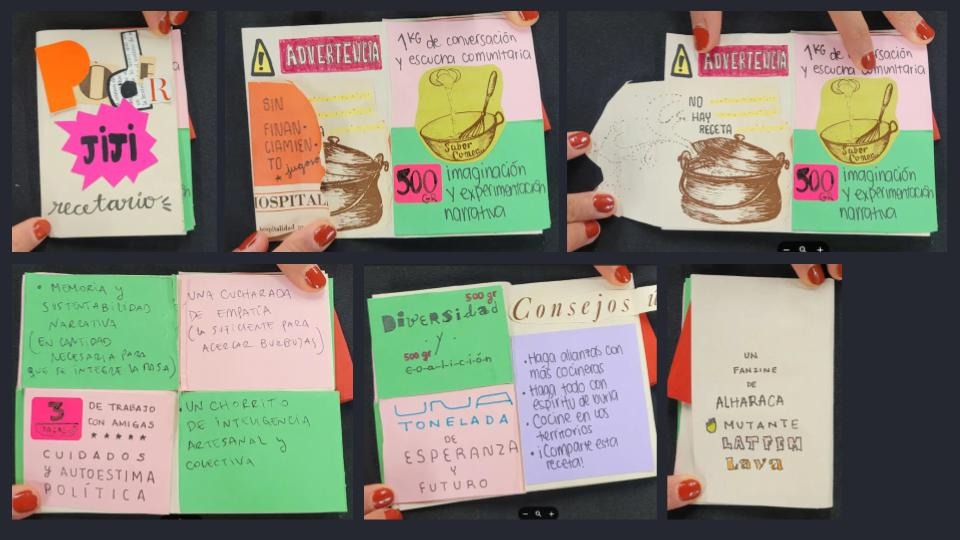 PODER
JIJI
recetario
ADVERTENCIA
SIN
FINAN-
CIAMIEN-
TO
* jugoso
HOSPITAL
1KG de conversación
y escucha comunitaria
Saber
Comer
500
GR
imaginación
y experimentación
narrativa
ADVERTENCIA
NO
HAY
RECETA
1KG de conversación
y escucha comunitaria
Saber
Comer
500
GR
imaginación
y experimentación
narrativa
• MEMORIA y
SUSTENTABILIDAD
NARRATIVA
(EN CANTIDAD
NECESARIA PARA
QUE SE INTEGRE LA MASA)
UNA CUCHARADA
DE EMPATÍA
(LA SUFICIENTE PARA
ACERCAR BURBUJAS)
3
TAZAS
DE TRABAJO
CON AMIGAS
CUIDADOS
y AUTOESTIMA
POLÍTICA
• UN CHORRITO
DE INTELIGENCIA
ARTESANAL y
COLECTIVA
500 gr
DiVERSidad
y
500 gr
Coalición
UNA
TONELADA
DE
ESPERANZA
Y
FUTURO
Consejos
• Haga alianzas con
más cocineras
• Haga todo con
espíritu de burla
• Cocine en los
territorios
• ¡Comparte esta
receta!
UN
FANZINE
DE
ALHARACA
MUTANTE
LATFEM
Lava